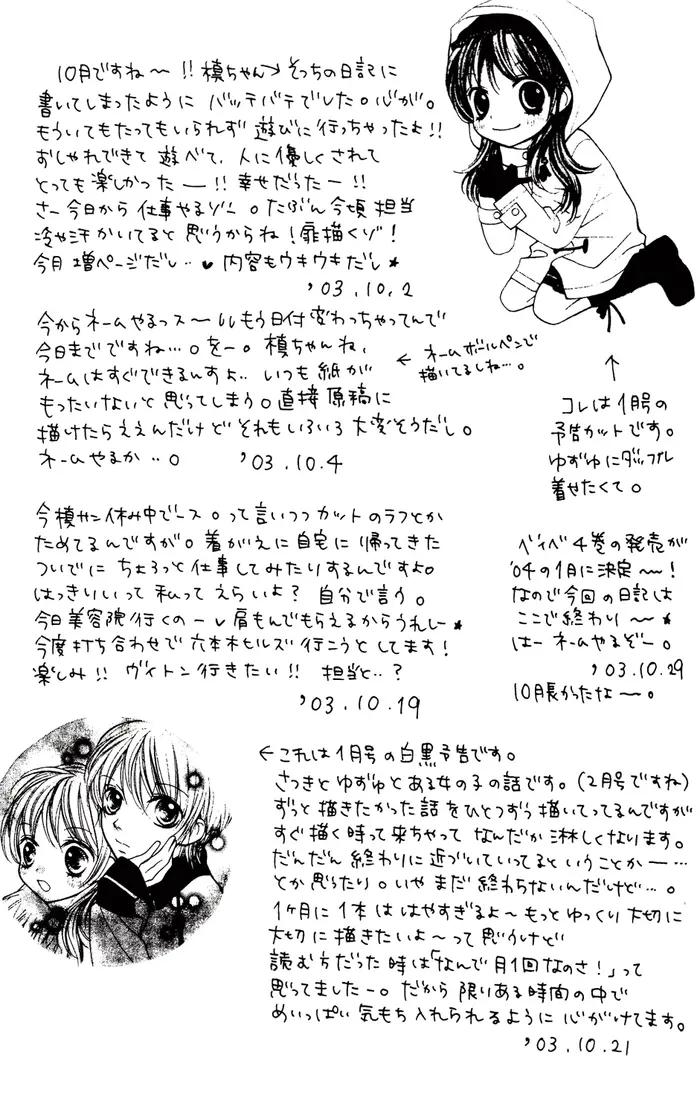 10月ですね〜!! 槙ちゃん→そっちの日記に
書いてしまったように バッテバテでした。心が。
もういてもたってもいられず 遊びに行っちゃったよ!!
おしゃれできて 遊べて、人に優しくされて
とっても楽しかったー!! 幸せだったー!!
さー今日から仕事やるゾー。たぶん今頃 担当
冷や汗かいてると思うからね！扉描くゾ！
今月増ページだし‥♥ 内容もウキウキだし★
'03.10.2
今からネームやるっス〜 もう日付変わっちゃってんで
今日までですね…。をー。槙ちゃんね、
ネームはすぐできるんすよ‥いつも紙が
もったいないと思ってしまう。直接原稿に
描けたらええんだけど それもいろいろ大変そうだし。
ネームやるか‥。 '03.10.4
← ネームボールペンで
描いてるしね…。
↑
コレは1月号の
予告カットです。
ゆずゆにダッフル
着せたくて。
今槙サン休み中でース。って言いつつカットのラフとか
ためてるんですが。着がえに自宅に帰ってきた
ついでに ちょろっと仕事してみたりするんですよ。
はっきりいって 私ってえらいよ？ 自分で言う。
今日美容院行くのー 肩もんでもらえるからうれしー★
今度打ち合わせで六本木ヒルズ行こうとしてます！
楽しみ!! ヴィトン行きたい!! 担当と‥？
'03.10.19
ベイベ4巻の発売が
'04の1月に決定〜！
なので今回の日記は
ここで終わり〜★
はーネームやるぞー。
'03.10.29
10月長かったな〜。
←これは1月号の白黒予告です。
さつきとゆずゆとある女の子の話です。(2月号ですね)
ずっと描きたかった話をひとつずつ描いてってるんですが
すぐ描く時って来ちゃって なんだか淋しくなります。
だんだん終わりに近づいていってるということかー…
とか思ったり。いやまだ終わらないんだけど…。
1ヶ月に1本ははやすぎるよ〜もっとゆっくり大切に
大切に描きたいよ〜って思うけど
読む方だった時は「なんで月1回なのさ！」って
思ってましたー。だから 限りある時間の中で
めいっぱい気もち入れられるように心がけてます。
'03.10.21